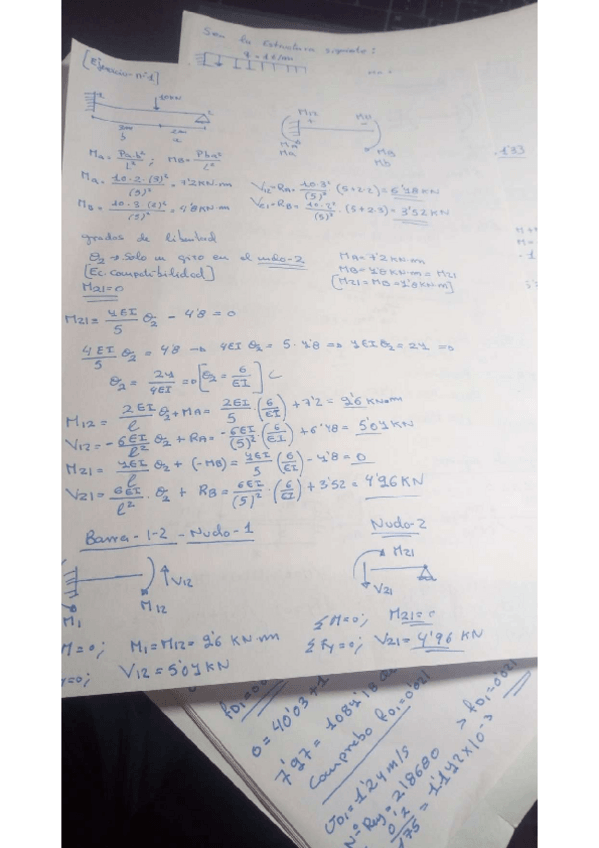 Sea la estructura siguiente:
q = 1 t/m
[Ejercicio nº1]
10kN
3m 2m
b a
M12 M21
+ -
MA MB
MA = P·a·b²/l² ; MB = P·b·a²/l²
MA = 10·2·(3)²/(5)² = 7'2 KN·m V12=RA= 10·3²/(5)³ (5+2·2) = 6'48 KN
MB = 10·3·(2)²/(5)² = 4'8 KN·m V21=RB= 10·2²/(5)³ · (5+2·3) = 3'52 KN
133
grados de libertad
θ2 → Solo un giro en el nudo-2 MA = 7'2 KN·m
[Ec. compatibilidad] MB = 4'8 KN·m = M21
M21=0 [M21 = MB = 4'8 KN·m]
M21 = 4EI/5 θ2 - 4'8 = 0
4EI/5 θ2 = 4'8 → 4EI θ2 = 5·4'8 => 4EI θ2 = 24 =>
θ2 = 24/4EI => [θ2 = 6/EI]
M12 = 2EI/l θ2 + MA = 2EI/5 · (6/EI) + 7'2 = 9'6 KN·m
V12 = -6EI/l² θ2 + RA = -6EI/(5)² · (6/EI) + 6'48 = 5'04 KN
M21 = 4EI/l θ2 + (-MB) = 4EI/5 (6/EI) - 4'8 = 0
V21 = 6EI/l² · θ2 + RB = 6EI/(5)² · (6/EI) + 3'52 = 4'96 KN
Barra-1-2-Nudo-1 Nudo-2
V12 M21
M12 V21
M1
M=0; M1 = M12 = 9'6 KN·m ΣM=0; M21=0
y=0; V12 = 5'04 KN ΣFy=0; V21 = 4'96 KN
0 = 40'03+1
7'97 = 1084'18
Comprebo f01=0'021
f01=0'021
U01=1'24 m/s
Nº Rey = 218680
0'2/175 = 1'142×10-3